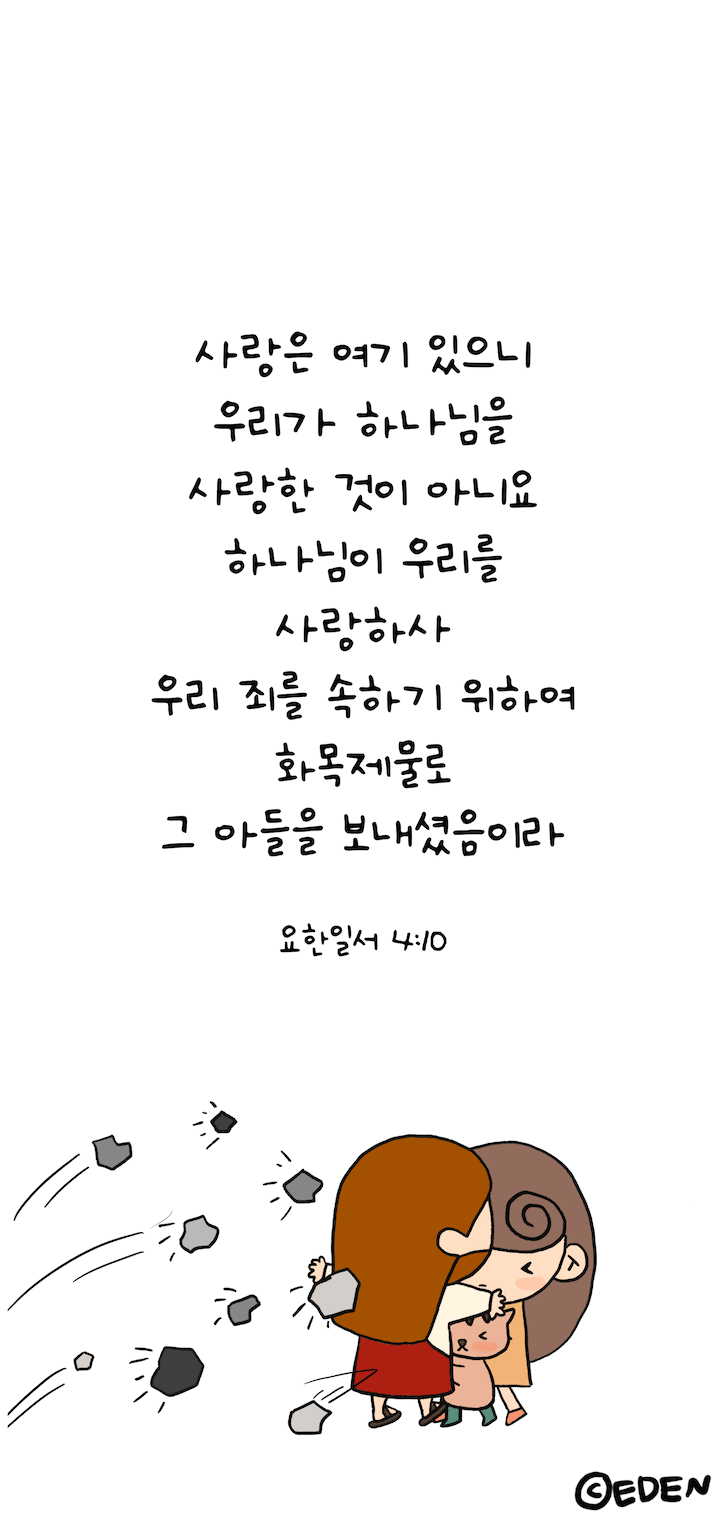 사랑은 여기 있으니
우리가 하나님을
사랑한 것이 아니요
하나님이 우리를
사랑하사
우리 죄를 속하기 위하여
화목제물로
그 아들을 보내셨음이라
요한일서 4:10
©EDEN